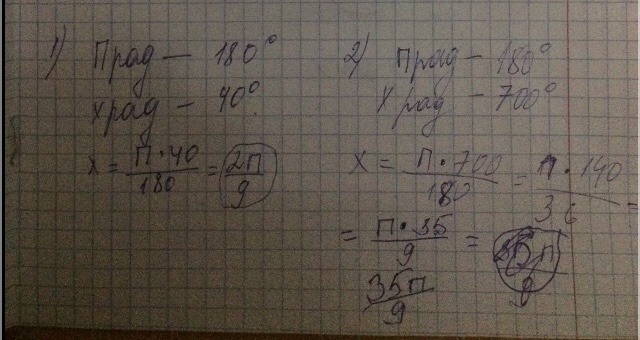 1) П рад — 180°
х рад — 40°
х = П · 40 / 180 = 2П / 9
2) П рад — 180°
х рад — 700°
х = П · 700 / 180 = П · 140 / 36 =
= П · 35 / 9 =
35П / 9